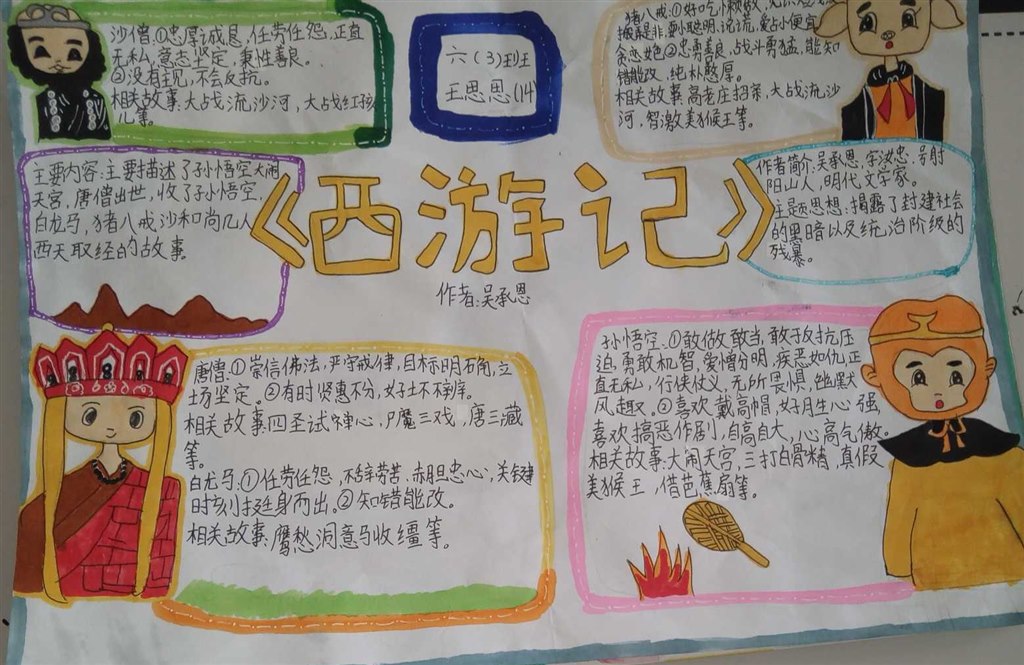 沙僧.①忠厚诚恳,任劳任怨,正直
无私,意志坚定,秉性善良。
②没有主见,不会反抗。
相关故事:大战流沙河,大战红孩
儿等。
六(3)班
王思思(14
猪八戒:①好吃懒做,
搬弄是非,耍小聪明,说谎,爱占小便宜
贪恋女色②忠勇善良,战斗勇猛,能知
错能改,纯朴憨厚。
相关故事:高老庄招亲,大战流沙
河,智激美猴王等。
主要内容:主要描述了孙悟空大闹
天宫,唐僧出世,收了孙悟空,
白龙马,猪八戒沙和尚几人
西天取经的故事。
《西游记》
作者:吴承恩
作者简介:吴承恩,字汝忠,号射
阳山人,明代文学家。
主题思想:揭露了封建社会
的黑暗以及统治阶级的
残暴。
唐僧:①崇信佛法,严守戒律,目标明确,立
场坚定。②有时贤惠不分,好土不辨。
相关故事四圣试禅心,尸魔三戏,唐三藏
等。
白龙马,①任劳任怨,不辞劳苦.赤胆忠心,关键
时刻挺身而出。②知错能改。
相关故事:鹰愁洞意马收缰等。
孙悟空.①敢做敢当,敢于反抗压
迫,勇敢机智,爱憎分明,疾恶如仇正
直无私,行侠仗义,无所畏惧,幽默
风趣。②喜欢戴高帽,好胜心强,
喜欢搞恶作剧,自高自大,心高气傲。
相关故事:大闹天宫,三打白骨精,真假
美猴王,借芭蕉扇等。